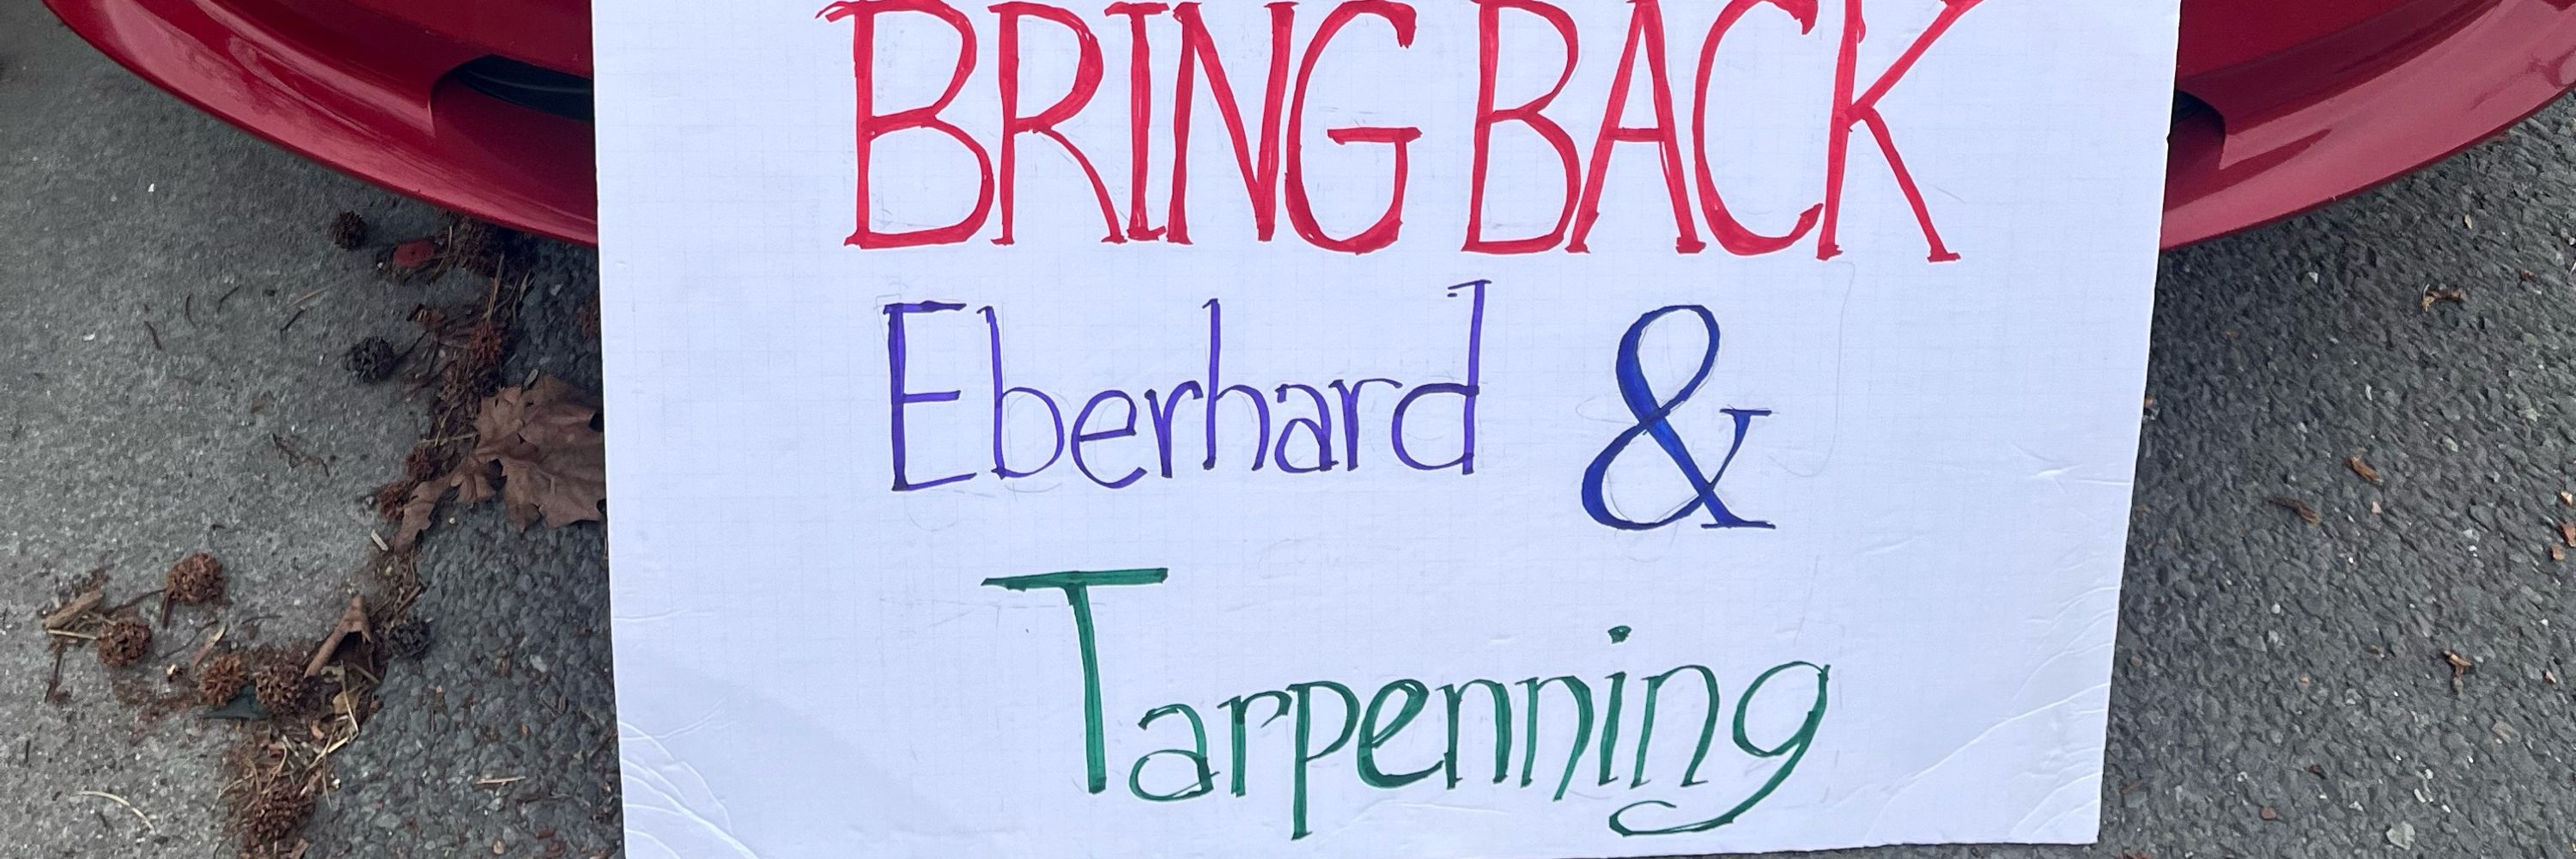 BRING BACK
Eberhard &
Tarpenning